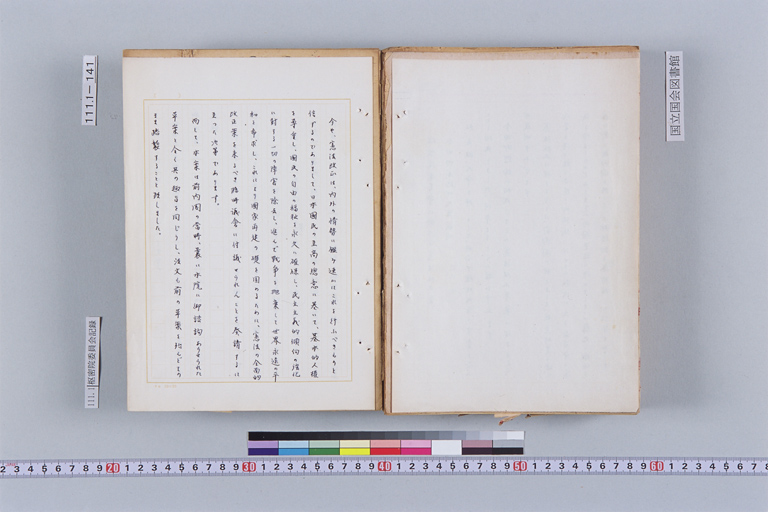 今や、憲法改正は、内外の情勢に鑑み速かにこれを行ふべきものと
信ずるのでありまして、日本国民の至高の総意に基いて、基本的人権
を尊重し、国民の自由の福祉を永久に確保し、民主主義的傾向の強化
に対する一切の障害を除去し、進んで戦争を抛棄して世界永遠の平
和を希求し、これにより国家再建の礎を固めるために、憲法の全面的
改正案を来るべき臨時議会に付議せられんことを奏請するに
至つた次第であります。
而して、本案は前内閣の当時、曩に本院に御諮詢あらせられた
草案と全く其の趣旨を同じうし、法文も前の草案を殆んどその
まま踏襲することと致しました。
国立国会図書館
111.1-141
111.1 枢密院委員会記録
2 3 4 5 6 7 8 9 20 1 2 3 4 5 6 7 8 9 30 1 2 3 4 5 6 7 8 9 40 1 2 3 4 5 6 7 8 9 50 1 2 3 4 5 6 7 8 9 60 1 2 3 4 5 6 7 8